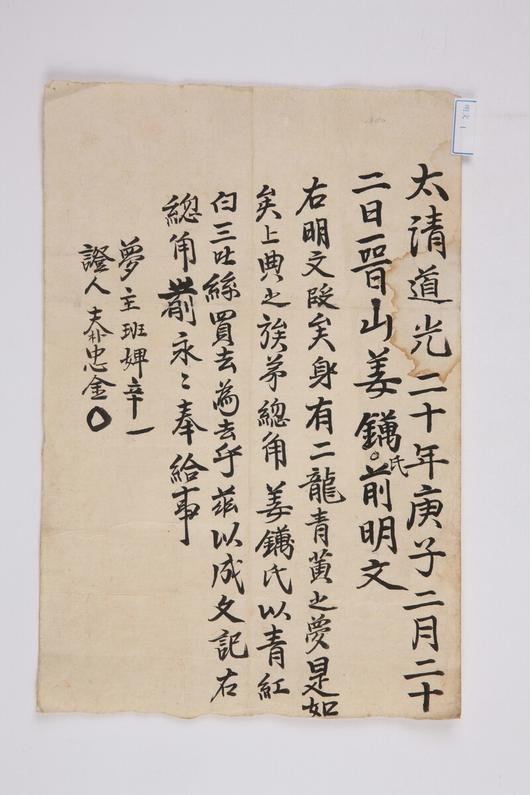 太清道光二十年庚子二月二十
二日晋山姜鏋氏前明文
右明文段矣身有二龍青黃之夢是如
矣上典之族弟總角 姜鏋氏以青紅
白三吐絲買去為去乎茲以成文記右
總角前永〻奉給事
夢主班婢辛一
證人夫朴忠金
明文 1